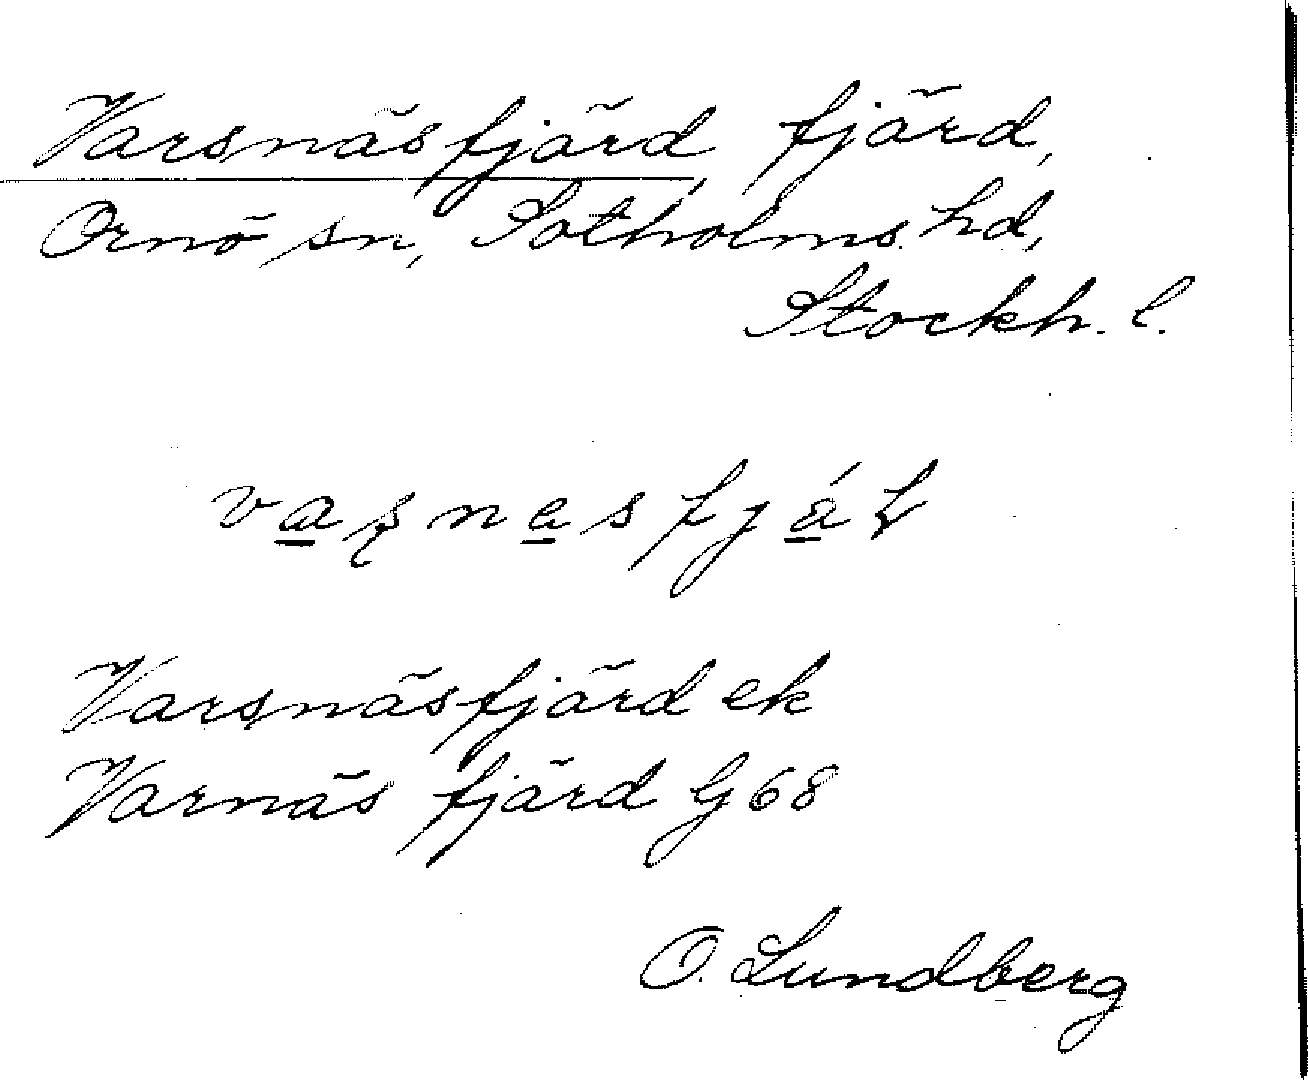 Varsnäsfjärd, fjärd,
Ornö sn, Sotholms hd,
Stockh. l.
Varsnäsfjärd ek
Varnäs fjärd G68
O. Lundberg